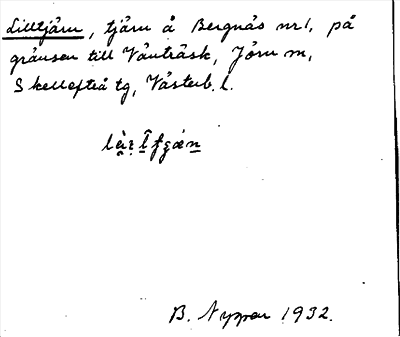 Lilltjärn, tjärn å Bergnäs nr 1, på
gränsen till Vänträsk, Jörn sn,
Skellefteå tg, Västerb. l.
B. Nyman 1932.